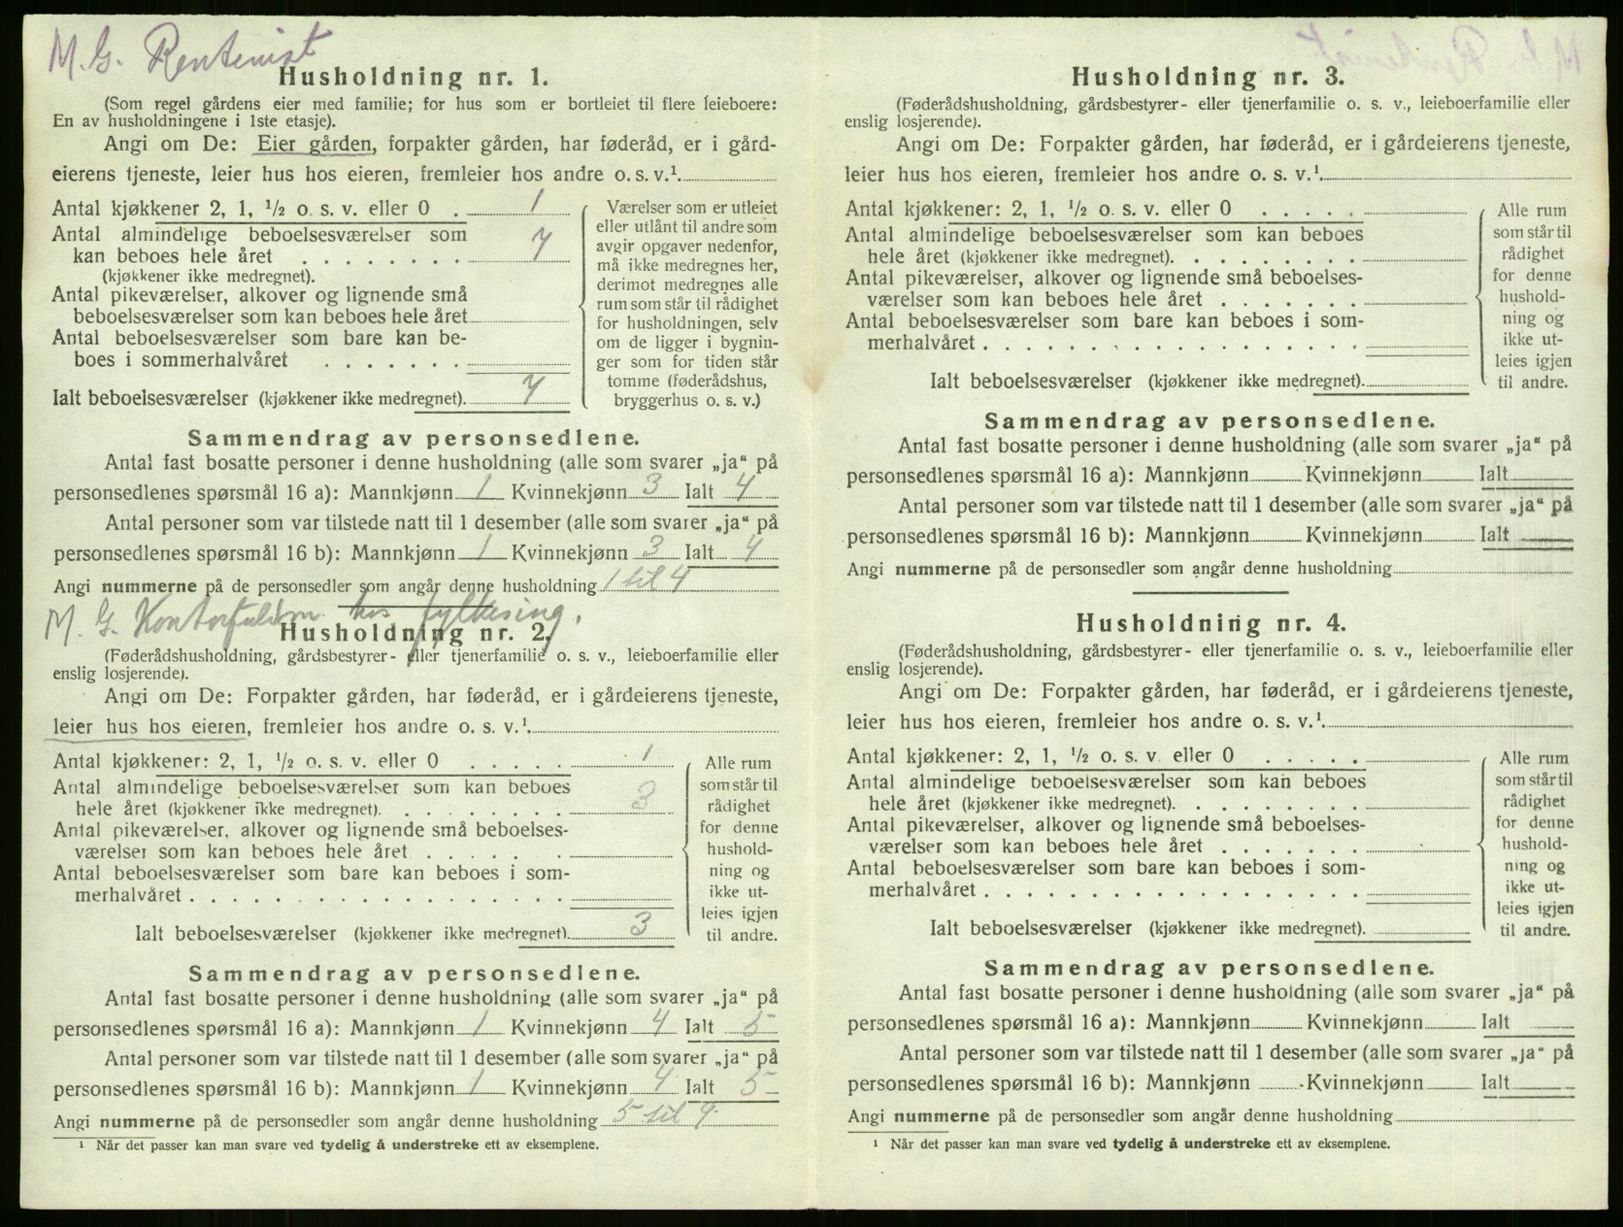 M. G. Rentenist
Husholdning nr. 1.
(Som regel gårdens eier med familie; for hus som er bortleiet til flere leieboere:
En av husholdningene i 1ste etasje).
Angi om De: Eier gården, forpakter gården, har føderåd, er i gård-
eierens tjeneste, leier hus hos eieren, fremleier hos andre o. s. v.¹
Antal kjøkkener 2, 1, ½ o. s. v. eller 0 . 1
Antal almindelige beboelsesværelser som
kan beboes hele året . . . . . . . . 7
(kjøkkener ikke medregnet).
Antal pikeværelser, alkover og lignende små
beboelsesværelser som kan beboes hele året
Antal beboelsesværelser som bare kan be-
boes i sommerhalvåret . . . . . . .
Ialt beboelsesværelser (kjøkkener ikke medregnet). 7
Værelser som er utleiet
eller utlånt til andre som
avgir opgaver nedenfor,
må ikke medregnes her,
derimot medregnes alle
rum som står til rådighet
for husholdningen, selv
om de ligger i bygnin-
ger som for tiden står
tomme (føderådshus,
bryggerhus o. s. v.)
Sammendrag av personsedlene.
Antal fast bosatte personer i denne husholdning (alle som svarer „ja“ på
personsedlenes spørsmål 16 a): Mannkjønn 1 Kvinnekjønn 3 Ialt 4
Antal personer som var tilstede natt til 1 desember (alle som svarer „ja“ på
personsedlenes spørsmål 16 b): Mannkjønn 1 Kvinnekjønn 3 Ialt 4
Angi nummerne på de personsedler som angår denne husholdning 1 til 4
M. G. hos fylkesing.
Husholdning nr. 2.
(Føderådshusholdning, gårdsbestyrer- eller tjenerfamilie o. s. v., leieboerfamilie eller
enslig losjerende).
Angi om De: Forpakter gården, har føderåd, er i gårdeierens tjeneste,
leier hus hos eieren, fremleier hos andre o. s. v.¹
Antal kjøkkener: 2, 1, ½ o. s. v. eller 0 . . . . . 1
Antal almindelige beboelsesværelser som kan beboes
hele året (kjøkkener ikke medregnet). . . . . . . . 3
Antal pikeværelser, alkover og lignende små beboelses-
værelser som kan beboes hele året . . . . . . .
Antal beboelsesværelser som bare kan beboes i som-
merhalvåret . . . . . . . . . . . . . . . . . .
Ialt beboelsesværelser (kjøkkener ikke medregnet). 3
Alle rum
som står til
rådighet
for denne
hushold-
ning og
ikke ut-
leies igjen
til andre.
Sammendrag av personsedlene.
Antal fast bosatte personer i denne husholdning (alle som svarer „ja“ på
personsedlenes spørsmål 16 a): Mannkjønn 1 Kvinnekjønn 4 Ialt 5
Antal personer som var tilstede natt til 1 desember (alle som svarer „ja“ på
personsedlenes spørsmål 16 b): Mannkjønn 1 Kvinnekjønn 4 Ialt 5
Angi nummerne på de personsedler som angår denne husholdning 5 til 9.
¹ Når det passer kan man svare ved tydelig å understreke ett av eksemplene.
Husholdning nr. 3.
(Føderådshusholdning, gårdsbestyrer- eller tjenerfamilie o. s. v., leieboerfamilie eller
enslig losjerende).
Angi om De: Forpakter gården, har føderåd, er i gårdeierens tjeneste,
leier hus hos eieren, fremleier hos andre o. s. v.¹
Antal kjøkkener: 2, 1, ½ o. s. v. eller 0 . . . . .
Antal almindelige beboelsesværelser som kan beboes
hele året (kjøkkener ikke medregnet). . . . . . . . .
Antal pikeværelser, alkover og lignende små beboelses-
værelser som kan beboes hele året . . . . . . .
Antal beboelsesværelser som bare kan beboes i som-
merhalvåret . . . . . . . . . . . . . . . . . .
Ialt beboelsesværelser (kjøkkener ikke medregnet).
Alle rum
som står til
rådighet
for denne
hushold-
ning og
ikke ut-
leies igjen
til andre.
Sammendrag av personsedlene.
Antal fast bosatte personer i denne husholdning (alle som svarer „ja“ på
personsedlenes spørsmål 16 a): Mannkjønn Kvinnekjønn Ialt
Antal personer som var tilstede natt til 1 desember (alle som svarer „ja“ på
personsedlenes spørsmål 16 b): Mannkjønn Kvinnekjønn Ialt
Angi nummerne på de personsedler som angår denne husholdning
Husholdning nr. 4.
(Føderådshusholdning, gårdsbestyrer- eller tjenerfamilie o. s. v., leieboerfamilie eller
enslig losjerende).
Angi om De: Forpakter gården, har føderåd, er i gårdeierens tjeneste,
leier hus hos eieren, fremleier hos andre o. s. v.¹
Antal kjøkkener: 2, 1, ½ o. s. v. eller 0 . . . . .
Antal almindelige beboelsesværelser som kan beboes
hele året (kjøkkener ikke medregnet). . . . . . . . .
Antal pikeværelser, alkover og lignende små beboelses-
værelser som kan beboes hele året . . . . . . .
Antal beboelsesværelser som bare kan beboes i som-
merhalvåret . . . . . . . . . . . . . . . . . .
Ialt beboelsesværelser (kjøkkener ikke medregnet).
Alle rum
som står til
rådighet
for denne
hushold-
ning og
ikke ut-
leies igjen
til andre.
Sammendrag av personsedlene.
Antal fast bosatte personer i denne husholdning (alle som svarer „ja“ på
personsedlenes spørsmål 16 a): Mannkjønn Kvinnekjønn Ialt
Antal personer som var tilstede natt til 1 desember (alle som svarer „ja“ på
personsedlenes spørsmål 16 b): Mannkjønn Kvinnekjønn Ialt
Angi nummerne på de personsedler som angår denne husholdning
¹ Når det passer kan man svare ved tydelig å understreke ett av eksemplene.